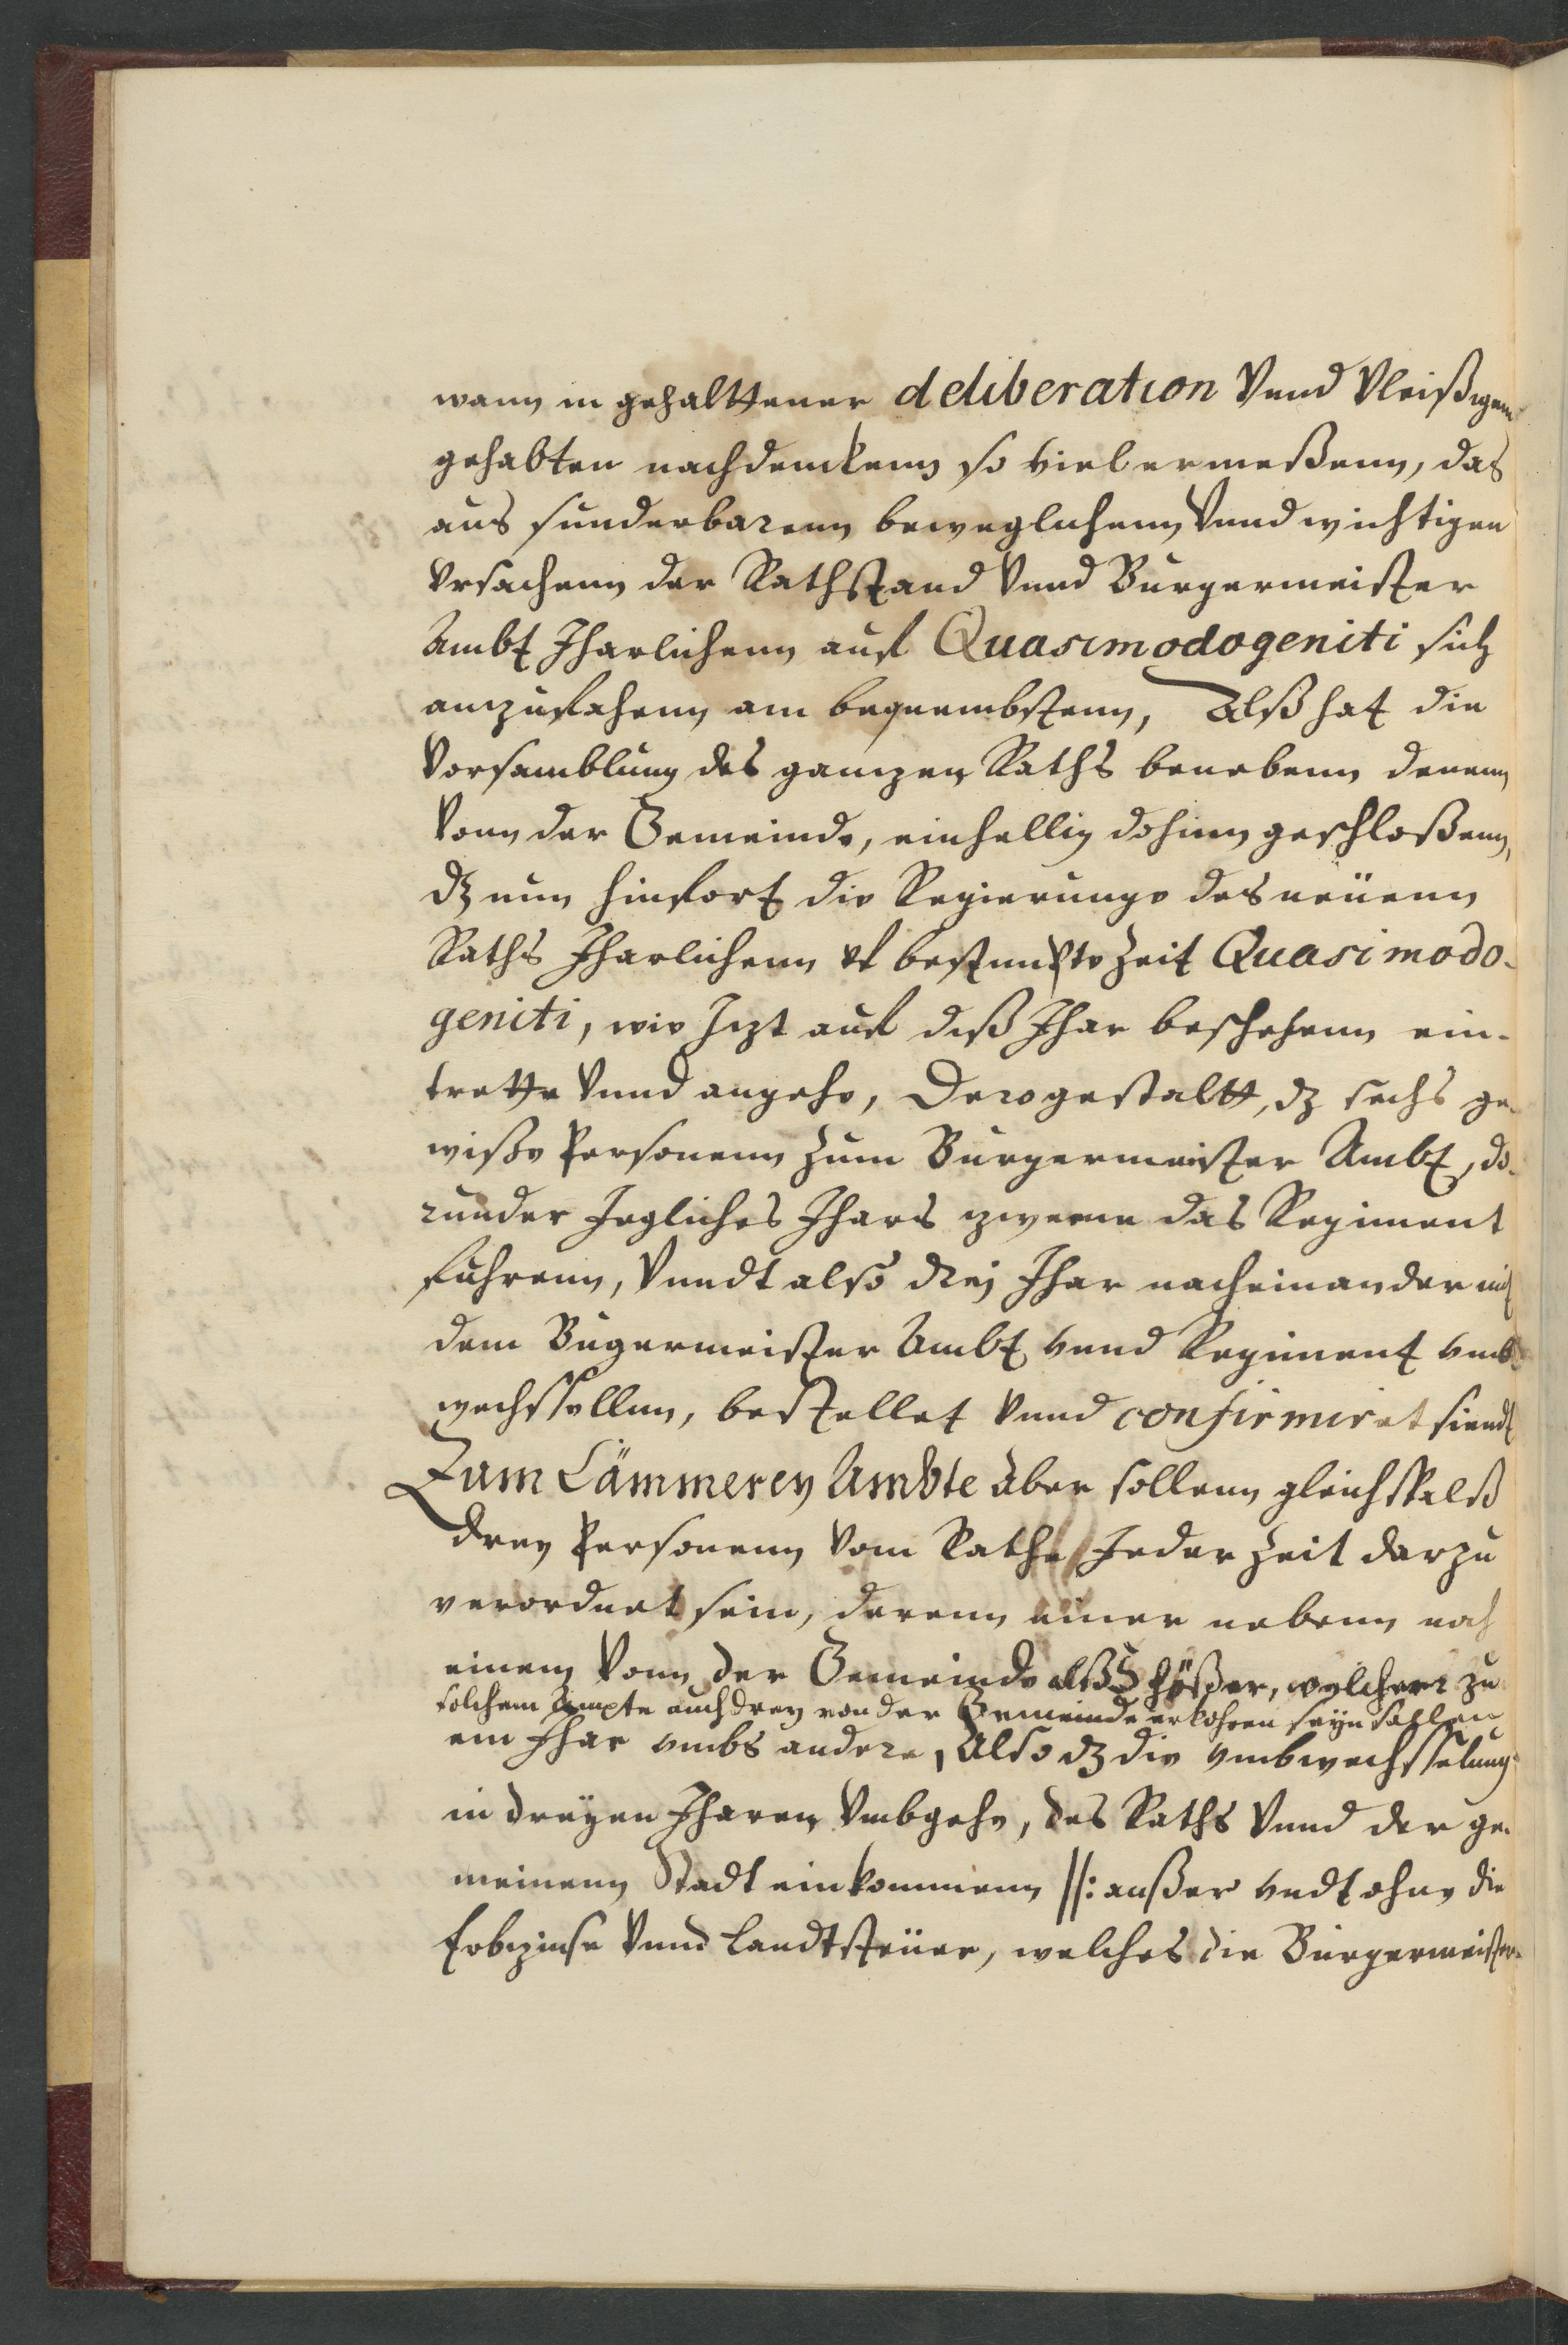 wann in gehalttener deliberation Vnnd Vleißigem
gehabten nachdenckenn so viel ermeßenn, das
aus sunderbarenn beweglichenn Vnnd wichtigen
Vrsachenn der Rathstand Vnnd Burgermeister
Ambt Jharlichenn auf Quasimodogeniti sich
anzufahenn am bequembstenn, Alß hat die
Vorsamblung des ganzen Raths benebenn denenn
Vonn der Gemeinde, einhellig dohinn geschloßenn,
dz nun hinfort die Regierunge des neüenn
Raths Jharlichenn vf bestimbte Zeit Quasimodo-
geniti, wie Jzt auf diß Jhar beschehenn ein-
trette Vnnd angehe, Derogestaltt, dz sechs ge-
wiße Personenn Zum Burgermeister Ambt, do-
runder Jegliches Jhars zweene das Regiment
fuhrenn, Vnndt also drej Jhar nacheinander mit
dem Bugermeister Ambt vnnd Regiment vmb-
wechssellnn, bestellet Vnnd confirmiret siendt
Zum Cämmerey Ambte aber sollenn gleichffalß
drey Personenn Vom Rathe Jeder Zeit darzu
verordnet sein, derenn einer nebenn noch
einem Vonn der Gemeinde alß Schößer, welcherr zu
solchem Ampte auch drey von der Gemeinde erkohren seyn sollen
ein Jhar vmbs andere, Also dz die vmbwechsselung
in dreyen Jharen Vmbgehe, des Raths Vnnd der ge-
meinenn Stadt einkommenn //: außer vndt ohne die
Erbzinse Vnnd Landtsteüer, welches die Burgermeister